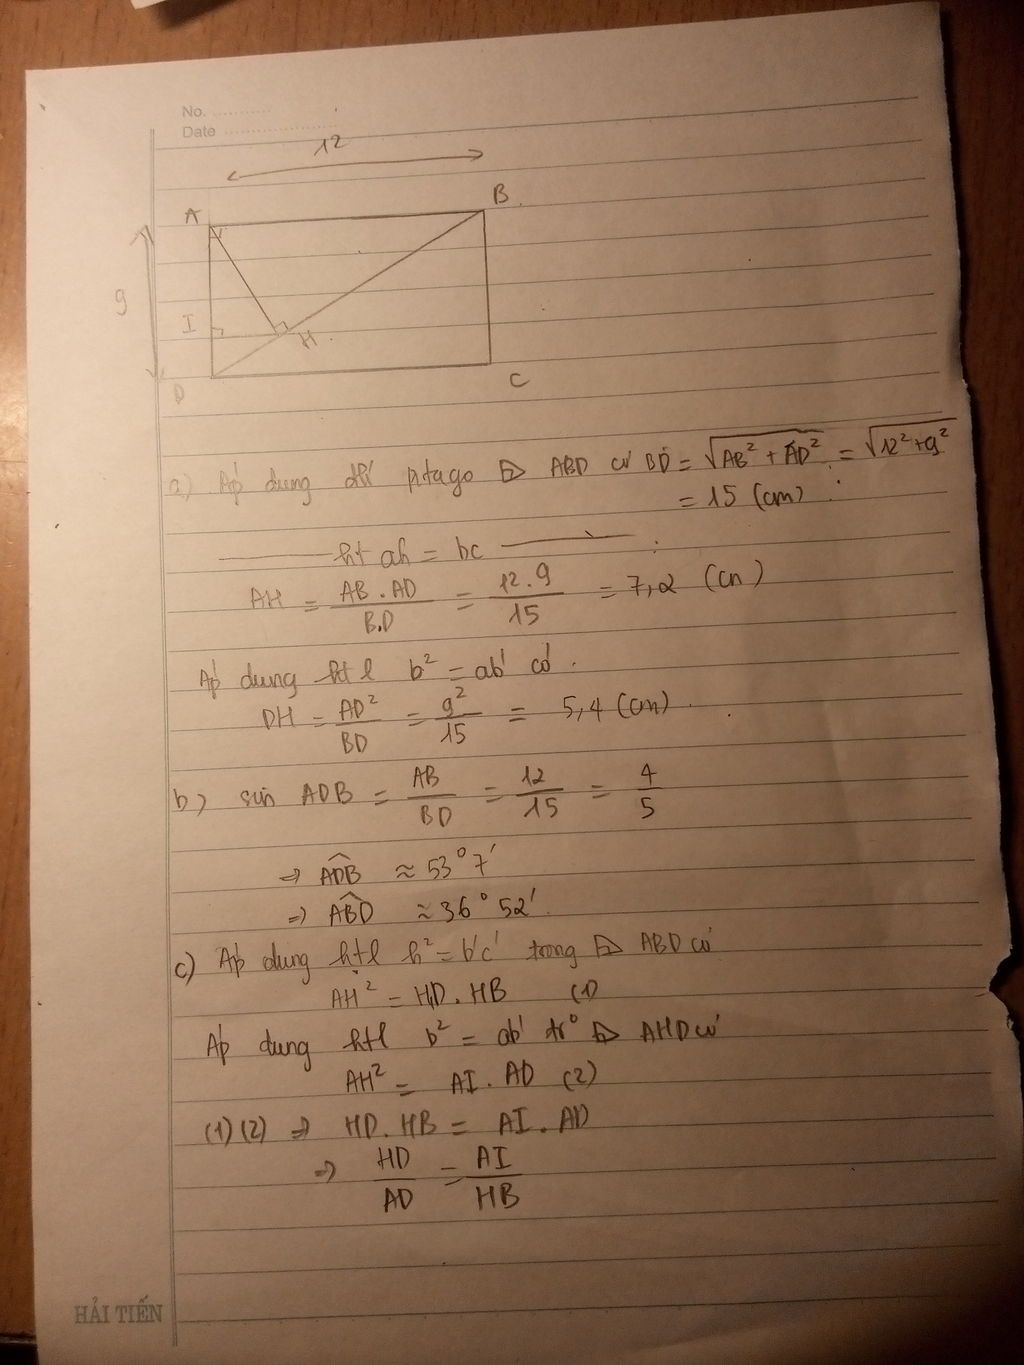 No. ............
Date ........................
12
A
B
9
I
H
D
C
a) Áp dụng đlí pitago ABD có BD = √AB² + AD² = √12² + 9²
= 15 (cm)
htl ah = bc
AH = AB . AD / BD = 12 . 9 / 15 = 7,2 (cm)
Áp dụng htl b² = ab' có
DH = AD² / BD = 9² / 15 = 5,4 (cm)
b) sin ADB = AB / BD = 12 / 15 = 4 / 5
⇒ ADB ≈ 53°7'
⇒ ABD ≈ 36°52'
c) Áp dụng htl h² = b'c' trong ABD có
AH² = HD . HB (1)
Áp dụng htl b² = ab' tr° AHD có
AH² = AI . AD (2)
(1)(2) ⇒ HD . HB = AI . AD
⇒ HD / AD = AI / HB
HẢI TIẾN